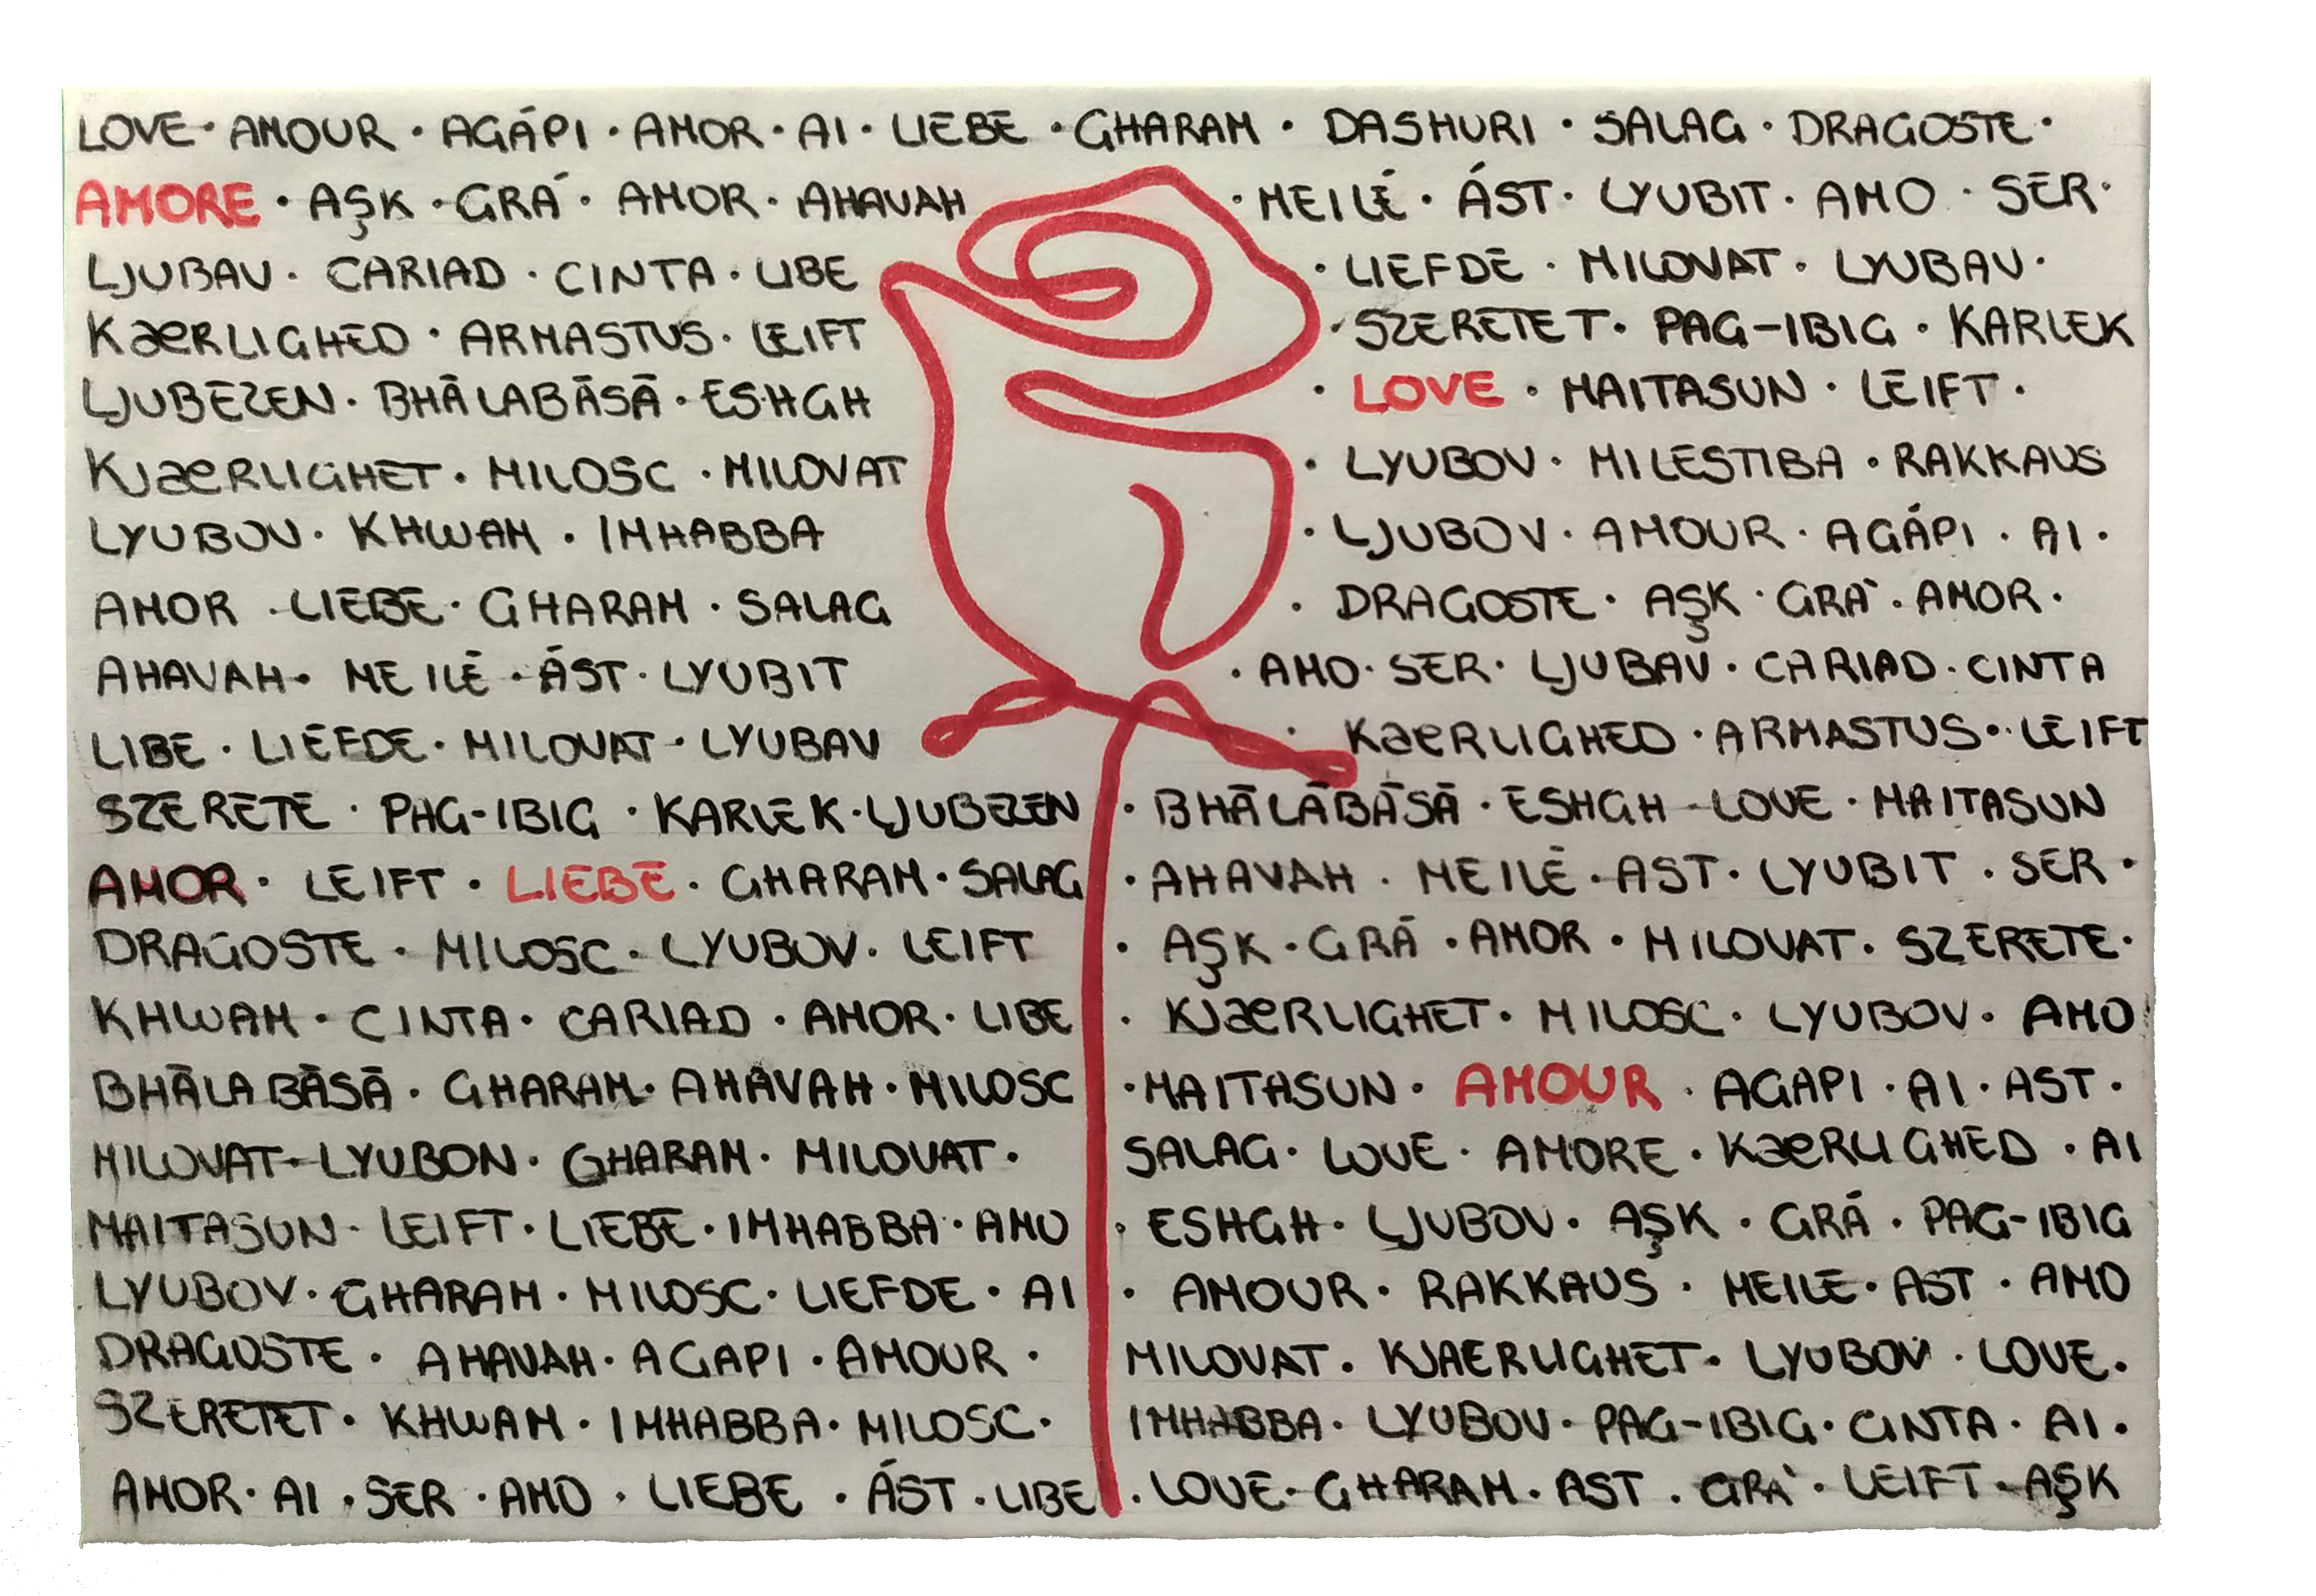 LOVE · AMOUR · AGÁPI · AMOR · AI · LIEBE · GHARAM · DASHURI · SALAG · DRAGOSTE ·
AMORE · AŞK · GRÁ · AMOR · AHAVAH · MEILÉ · ÁST · LYUBIT · AMO · SER ·
LJUBAV · CARIAD · CINTA · LIBE · LIEFDE · MILOVAT · LYUBAV ·
KæRLIGHED · ARMASTUS · LEIFT · SZERETET · PAG-IBIG · KARLEK
LJUBEZEN · BHĀLABĀSĀ · ESHGH · LOVE · MAITASUN · LEIFT ·
KJæRLIGHET · MILOSC · MILOVAT · LYUBOV · MILESTIBA · RAKKAUS
LYUBOV · KHWAM · IMHABBA · LJUBOV · AMOUR · AGÁPI · AI ·
AMOR · LIEBE · GHARAM · SALAG · DRAGOSTE · AŞK · GRÀ · AMOR ·
AHAVAH · MEILÉ · ÁST · LYUBIT · AMO · SER · LJUBAV · CARIAD · CINTA
LIBE · LIEFDE · MILOVAT · LYUBAV · KæRLIGHED · ARMASTUS · LEIFT
SZERETE · PAG-IBIG · KARLEK · LJUBEZEN · BHĀLĀBĀSĀ · ESHGH - LOVE · MAITASUN
AMOR · LEIFT · LIEBE · GHARAM · SALAG · AHAVAH · MEILÉ · AST · LYUBIT · SER ·
DRAGOSTE · MILOSC · LYUBOV · LEIFT · AŞK · GRÁ · AMOR · MILOVAT · SZERETE ·
KHWAM · CINTA · CARIAD · AMOR · LIBE · KJæRLIGHET · MILOSC · LYUBOV · AMO
BHĀLABĀSĀ · GHARAM · AHAVAH · MILOSC · MAITASUN · AMOUR · AGAPI · AI · AST ·
MILOVAT · LYUBON · GHARAM · MILOVAT · SALAG · LOVE · AMORE · KæRLIGHED · AI
MAITASUN · LEIFT · LIEBE · IMHABBA · AMO · ESHGH · LJUBOV · AŞK · GRÁ · PAG-IBIG
LYUBOV · GHARAM · MILOSC · LIEFDE · AI · AMOUR · RAKKAUS · MEILE · AST · AMO
DRAGOSTE · AHAVAH · AGAPI · AMOUR · MILOVAT · KJAERLIGHET · LYUBOV · LOVE ·
SZERETET · KHWAM · IMHABBA · MILOSC · IMHABBA · LYUBOV · PAG-IBIG · CINTA · AI ·
AMOR · AI · SER · AMO · LIEBE · ÁST · LIBE · LOVE · GHARAM · AST · GRÀ · LEIFT · AŞK